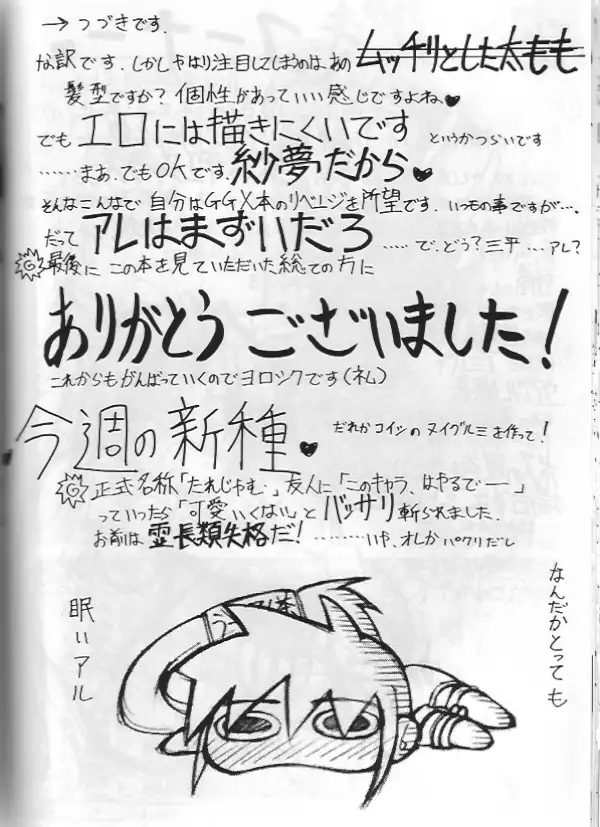 →つづきです.
な訳です.しかしやはり注目してしまうのは、あの ムッチリとした太もも
髪型ですか?個性があっていい感じですよね、♥
でも エロには描きにくいです というかつらいです
……まあ.でもOKです.紗夢だから♥
そんなこんなで 自分はGGX本のリベージを所望です.いつもの事ですが….
だって アレはまずいだろ ……で、どう?三平…アレ?
G 最後に この本を見ていただいた総ての方に
ありがとうございました!
これからもがんばっていくのでヨロシクです(礼)
今週の新種♥
だれかコイツのヌイグルミを作って!
G 正式名称「たれじゃむ」友人に「このキャラ、はやるでー」
っていったら「可愛いくない」とバッサリ斬られました.
お前は霊長類失格だ!………いや、オレがパクリだし
なんだかとっても
眠いアル